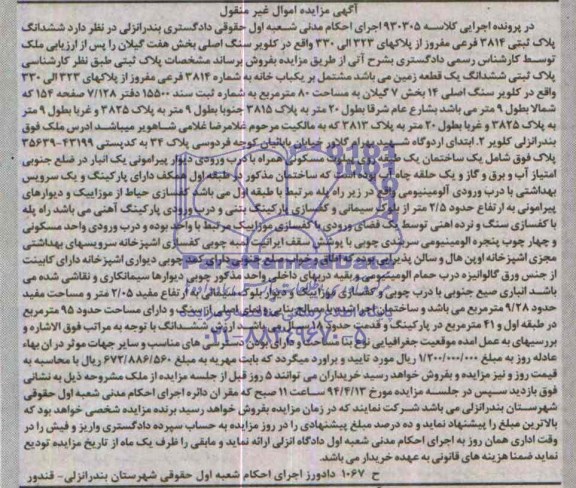 آگهی مزایده اموال غیر منقول
در پرونده اجرایی کلاسه ۹۳۰۳۰۵ اجرای احکام مدنی شعبه اول حقوقی دادگستری بندرانزلی در نظر دارد ششدانگ
پلاک ثبتی ۳۸۱۴ فرعی مفروز از پلاکهای ۳۲۳ الی ۳۳۰ واقع در کلویر سنگ اصلی بخش هفت گیلان را پس از ارزیابی ملک
توسط کارشناس رسمی دادگستری بشرح آتی از طریق مزایده بفروش برساند مشخصات پلاک ثبتی طبق نظر کارشناسی
پلاک ثبتی ششدانگ یک قطعه زمین می باشد مشتمل بر یکباب خانه به شماره ۳۸۱۴ فرعی مفروز از پلاکهای ۳۲۳ الی ۳۳۰
واقع در کلویر سنگ اصلی ۱۴ بخش ۷ گیلان به مساحت ۸۰ مترمربع به شماره ثبت سند ۱۵۵۰۰ دفتر ۷/۱۲۸ صفحه ۱۵۴ که
شمالا بطول ۹ متر می باشد بشارع عام شرقا بطول ۲۰ متر به پلاک ۳۸۱۵ جنوبا بطول ۹ متر به پلاک ۳۸۲۵ و غربا بطول ۹ متر
به پلاک ۳۸۲۵ و غربا بطول ۲۰ متر به پلاک ۳۸۱۳ که به مالکیت مرحوم غلامرضا غلامی شاهویر میباشد ادرس ملک فوق
بندرانزلی کلویر ۲. ابتدای اردوگاه شهید بهرام گلادور خیابان باباییان کوچه فردوسی پلاک ۳۴ به کدپستی ۴۳۱۹۹-۳۵۶۳۹
پلاک فوق شامل یک ساختمان یک طبقه روی پیلوت مسکونی همراه با درب ورودی دیوار پیرامونی یک انبار در ضلع جنوبی
امتیاز آب و برق و گاز و یک حلقه چاه آب است که ساختمان مذکور در طبقه اول همکف دارای پارکینگ و یک سرویس
بهداشتی با درب ورودی آلومینیومی واقع در زیر راه پله مرتبط با طبقه اول می باشد کفسازی حیاط از موزاییک و دیوارهای
پیرامونی به ارتفاع حدود ۲/۵ متر از بلوک سیمانی و کفسازی پارکینگ بتنی و درب ورودی پارکینگ آهنی می باشد راه پله
با کفسازی سنگ و نرده اهنی توسط یک فضای ورودی با کفسازی موزاییک مرتبط با واحد بوده و درب ورودی واحد مسکونی
و چهار چوب پنجره الومینیومی سربندی چوبی با پوشش سقف ایرانیت لمبه چوبی کفسازی اشپزخانه سرویسهای بهداشتی
مجزی اشپزخانه اوپن هال و سالن پذیرایی بوده که اتاق و خواب ضلع جنوبی دارای کمد چوبی دیواری اشپزخانه دارای کابینت
از جنس ورق گالوانیزه درب حمام الومینیومی و بقیه دربهای داخلی واحد مذکور چوبی دیوارها سیمانکاری و نقاشی شده می
باشد انباری ضیع جنوبی با درب چوبی و کفسازی موزاییک و دیوار بلوک سیمانی به ارتفاع مفید ۲/۰۵ متر و مساحت مفید
حدود ۹/۲۸ مترمربع می باشد و ساختمان احداثی با مصالح بنایی و دارای مساحت حدود ۹۵ مترمربع
در طبقه اول و ۴۱ مترمربع در پارکینگ و قدمت حدود ۱۸ سال می باشد ارزش ششدانگ با توجه به مراتب فوق الاشاره و
بررسیهای به عمل امده موقعیت جغرافیایی نوع ساخت و دارا بودن دسترسی های مناسب و سایر جهات موثر در ان بهاء
عادله روز به مبلغ ۱/۲۰۰/۰۰۰/۰۰۰ ریال مورد تایید و براورد میگردد که بابت مهریه به مبلغ ۶۷۲/۸۸۶/۵۶۰ ریال با محاسبه به
قیمت روز و نیز مزایده و بفروش خواهد رسید خریداران می توانند ۵ روز قبل از جلسه مزایده از ملک مشروحه ذیل به نشانی
فوق بازدید سپس در جلسه مزایده مورخ ۹۴/۴/۱۳ ساعت ۱۱ صبح که مقر ان دائره اجرای احکام مدنی شعبه اول حقوقی
شهرستان بندرانزلی می باشد شرکت نمایند که در زمان مزایده بفروش خواهد رسید برنده مزایده شخصی خواهد بود که
بالاترین مبلغ را پیشنهاد نماید و ده درصد مبلغ پیشنهادی را در روز مزایده به حساب سپرده دادگستری واریز و فیش را در
وقت اداری همان روز به اجرای احکام مدنی شعبه اول دادگاه انزلی ارائه نماید و مابقی را ظرف یک ماه از تاریخ مزایده تودیع
نماید ضمنا هزینه های قانونی به عهده خریدار می باشد.
ح ۱۰۶۷ دادورز اجرای احکام شعبه اول حقوقی شهرستان بندرانزلی- قندور